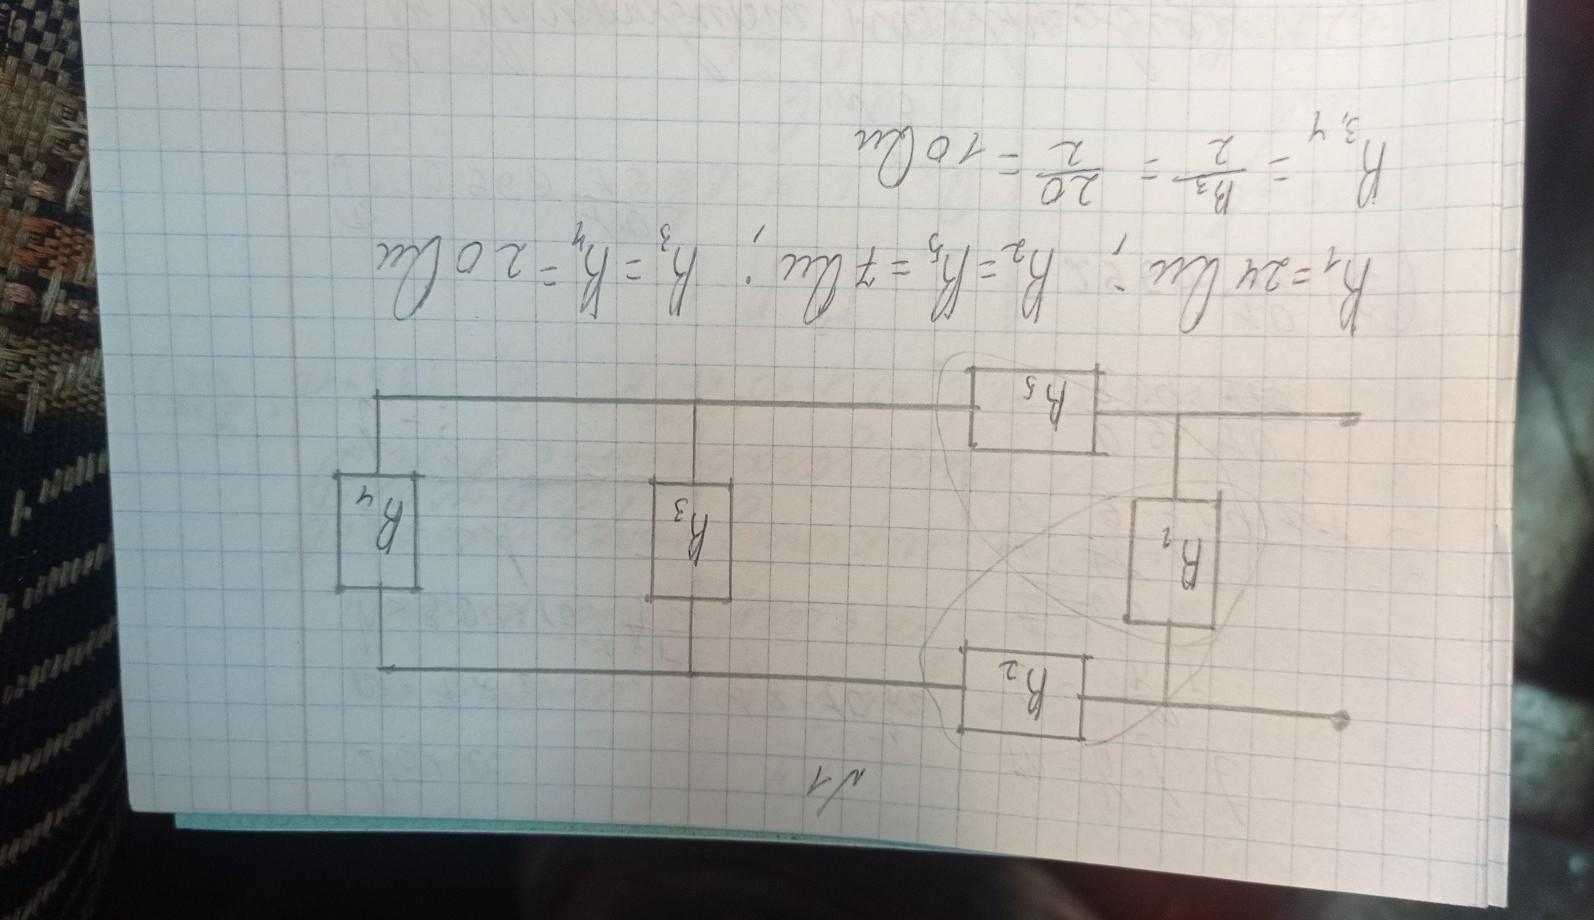 №1
R2
R1
R3
R4
R5
R1=24 Ом; R2=R5=7 Ом; R3=R4=20 Ом
R3,4 = R3/2 = 20/2 = 10 Ом